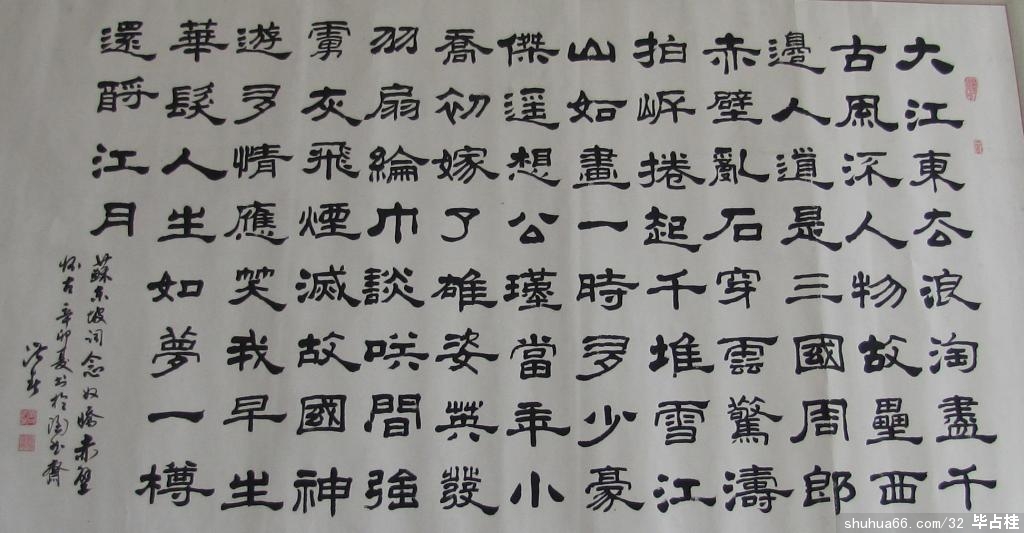 大江東去浪淘盡千
古風流人物故壘西
邊人道是三國周郎
赤壁亂石穿雲驚濤
拍岸捲起千堆雪江
山如畫一時多少豪
傑遥想公瑾當年小
喬初嫁了雄姿英發
羽扇綸巾談咲間強
虜灰飛煙滅故國神
遊多情應笑我早生
華髮人生如夢一樽
還酹江月
蘇東坡詞念奴嬌赤壁
怀古辛卯夏书於陶齋
shuhua66.com/32 毕占桂